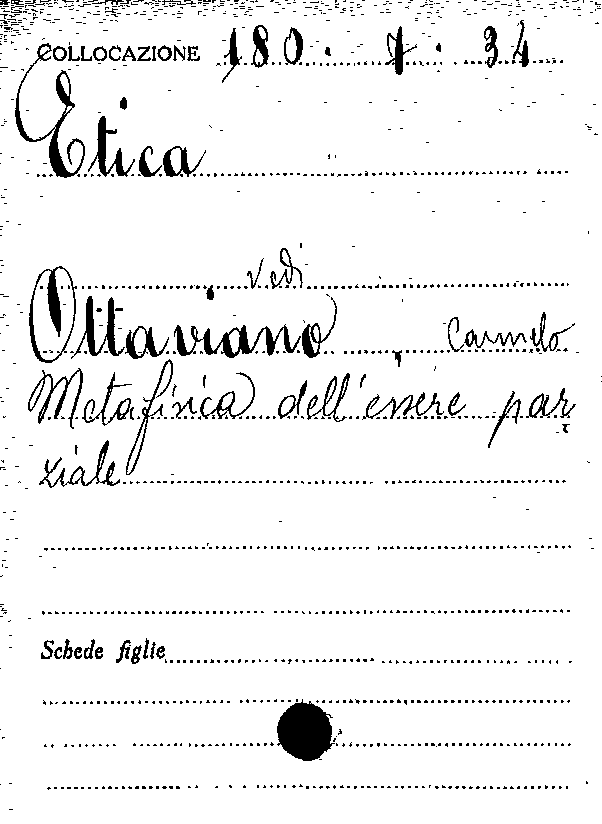 COLLOCAZIONE 180. 7. 34
Etica
vedi
Ottaviano, Carmelo
Metafisica dell'essere par
ziale
Schede figlie